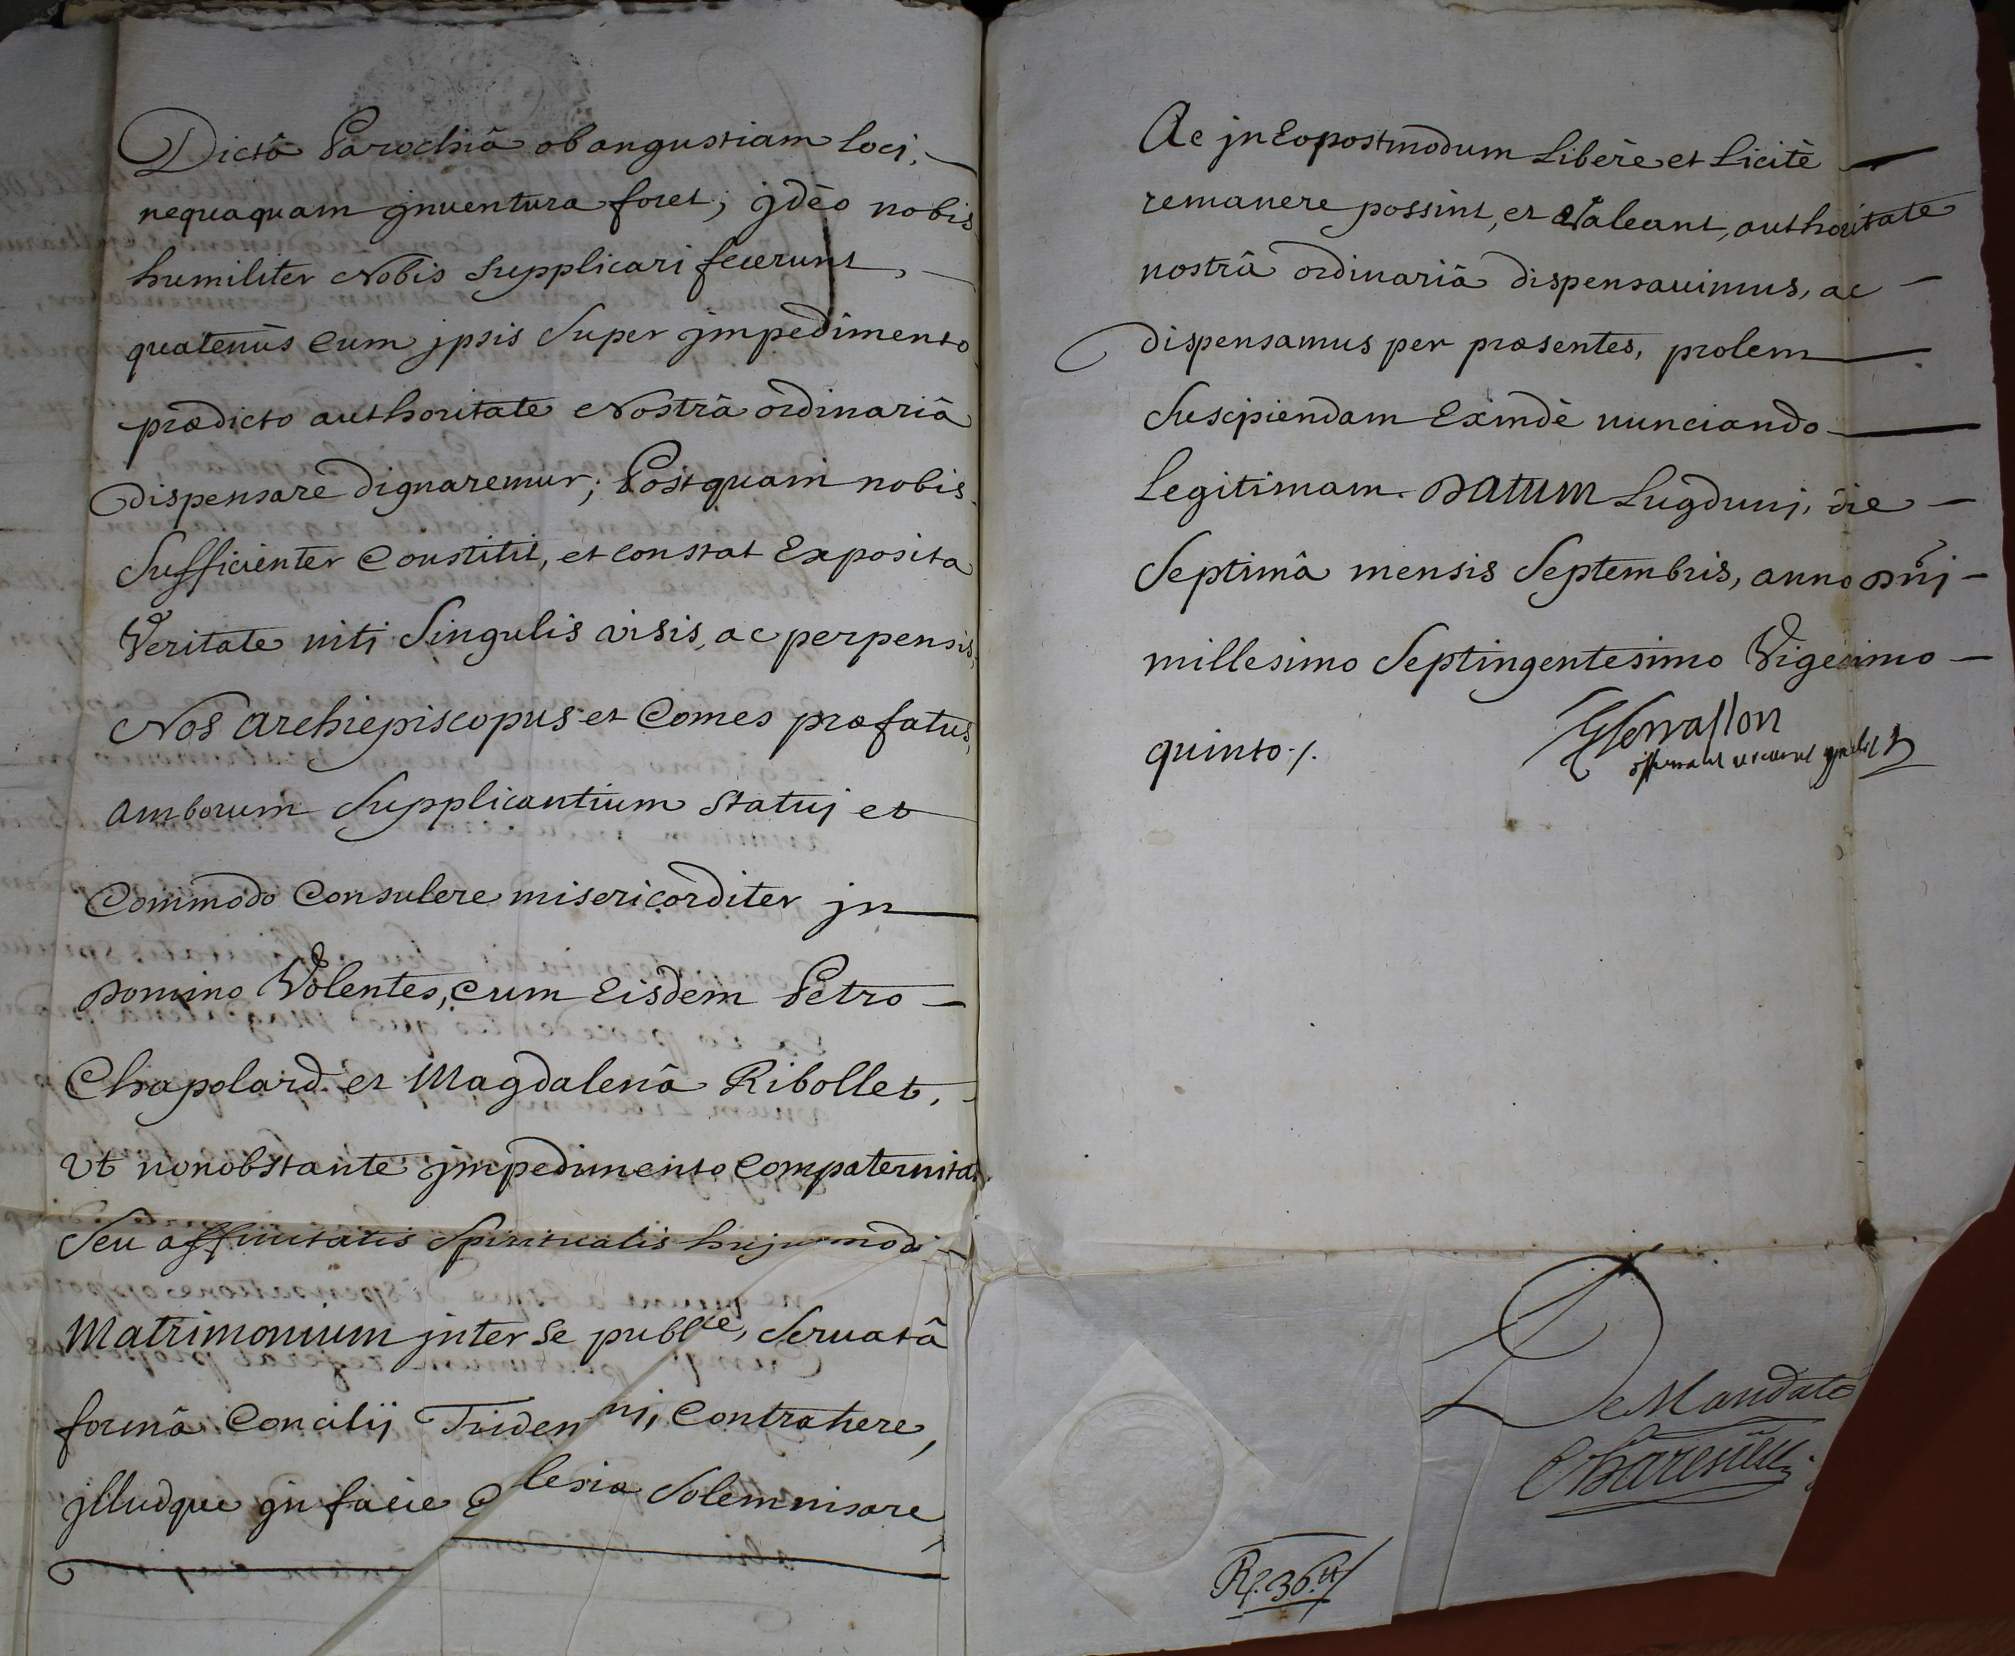 Dictâ Parochiâ ob angustiam loci,
nequaquam jnuentura foret; jdèo nobis
humiliter Nobis supplicari fecerunt,
quatenùs cum jpsis super jmpedimento
prædicto authoritate Nostrâ ordinariâ
dispensare dignaremur; Postquam nobis
sufficienter Constitit, et constat Exposita
Veritate niti singulis visis, ac perpensis,
Nos Archiepiscopus et Comes præfatus,
amborum supplicantium statuj et
Commodo Consulere misericorditer jn
Domino Volentes, cum Eisdem Petro
Chapolard et Magdalenâ Ribollet,
Vt nonobstante jmpedimento Compaternita
seu affinitatis spiritualis hujusmodi
Matrimonium jnter se publce, seruatâ
formâ Concilij Triden nj, Contrahere,
jlludque jn facie E lesia solemnisare,
Ac jn Eo postmodum Liberè et Licitè
remanere possint, et Valeant, authoritate
nostrâ ordinariâ dispensauimus, ac
dispensamus per præsentes, prolem
suscipiendam Exindè nunciando
Legitimam. Datum Lugdunj, die
septimâ mensis septembris, anno Dñj
millesimo septingentesimo Vigesimo
quinto./.
De Mandato
R. 36.tt